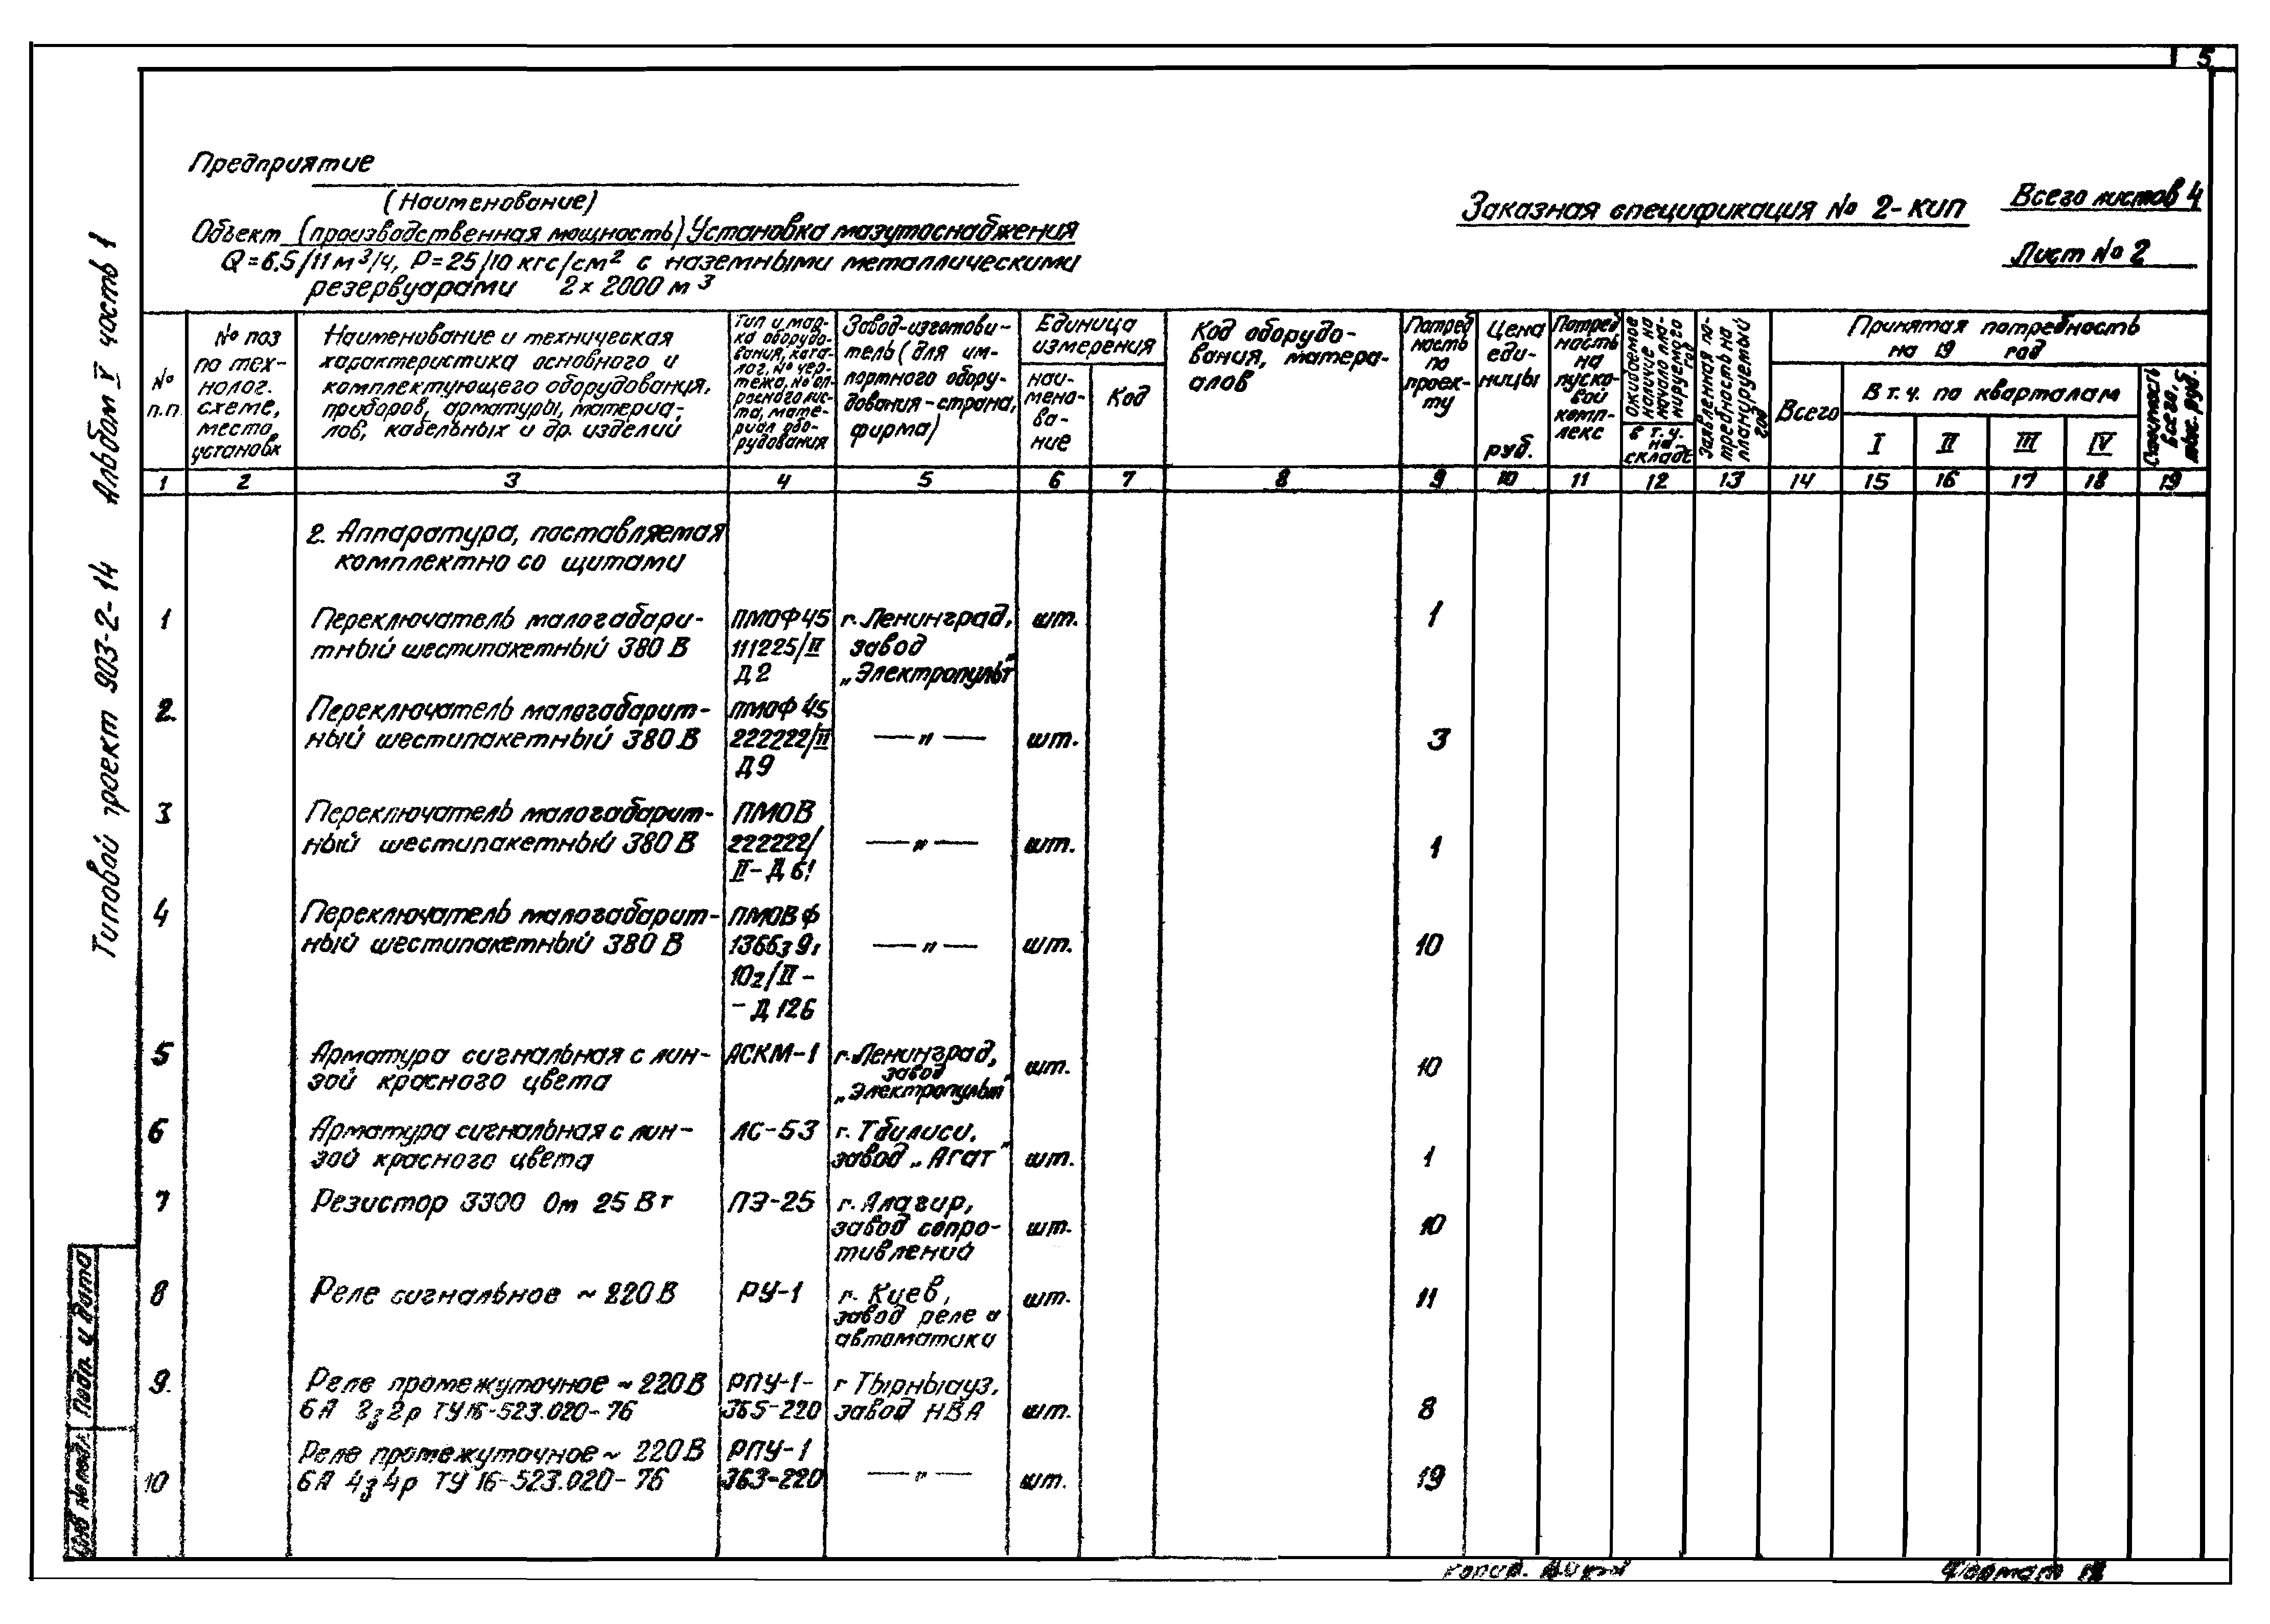 5
Предприятие
(Наименование)
Объект (производственная мощность) Установка мазутоснабжения
Q=6.5/11 м³/ч, P=25/10 кгс/см² с наземными металлическими
резервуарами 2×2000 м³
Заказная спецификация № 2-КИП
Всего листов 4
Лист № 2
Типовой проект 903-2-14 Альбом V часть 1
№ п.п.
№ поз по тех-нолог. схеме, место установк
Наименование и техническая
характеристика основного и
комплектующего оборудования,
приборов, арматуры, материа-
лов, кабельных и др. изделий
Тип и мар-
ка оборудо-
вания, ката-
лог, № чер-
тежа, № оп-
росного лис-
та, мате-
риал обо-
рудования
Завод-изготови-
тель (для им-
портного обору-
дования-страна,
фирма)
Единица
измерения
наи-
мено-
ва-
ние
Код
Код оборудо-
вания, матера-
алов
Потреб
ность
по
проек-
ту
Цена
еди-
ницы
руб.
Потреб
ность
на
пуско-
вой
комп-
лекс
Ожидаемое
наличие на
начало пла-
нируемого
год
в т.ч.
на
складе
Заявленная по-
требность на
планируемый
год
Принятая потребность
на 19 год
Всего
В т.ч. по кварталам
I II III IV
Стоимость
всего,
тыс. руб.
1 2 3 4 5 6 7 8 9 10 11 12 13 14 15 16 17 18 19
2. Аппаратура, поставляемая
комплектно со щитами
1 Переключатель малогабари- ПМОФ45 г. Ленинград, шт. 1
тный шестипакетный 380 В 111225/II завод
Д2 „Электропульт"
2. Переключатель малогабарит- ПМОФ 45
ный шестипакетный 380 В 222222/II —"— шт. 3
Д9
3 Переключатель малогабарит- ПМОВ
ный шестипакетный 380 В 222222/ —"— шт. 1
II-Д61
4 Переключатель малогабарит- ПМОВФ
ный шестипакетный 380 В 1366з9г —"— шт. 10
10г/II-
-Д126
5 Арматура сигнальная с лин- АСКМ-1 г. Ленинград, шт. 10
зой красного цвета завод
„Электропульт"
6 Арматура сигнальная с лин- ЛС-53 г. Тбилиси,
зой красного цвета завод „Агат" шт. 1
7 Резистор 3300 Ом 25 Вт ПЭ-25 г. Алагир,
завод сопро- шт. 10
тивлений
8 Реле сигнальное ~220В РУ-1 г. Киев, шт. 11
завод реле и
автоматики
9. Реле промежуточное ~220В РПУ-1- г Тырныауз,
6А 2з2р ТУ16-523.020-76 365-220 завод НВА шт. 8
Реле промежуточное ~ 220В РПУ-1
10 6А 4з4р ТУ 16-523.020-76 363-220 —"— шт. 19
Подп. и дата
Инв № подл.
Формат